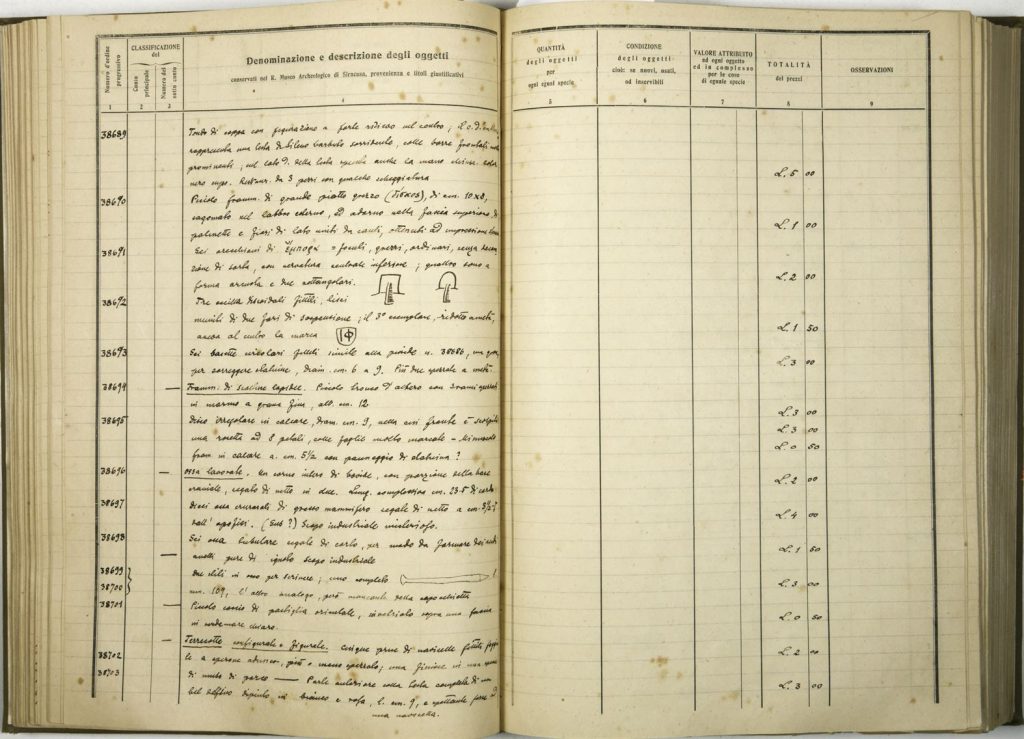 Numero d'ordine progressivo
CLASSIFICAZIONE del
Conto principale
Numero del sotto conto
Denominazione e descrizione degli oggetti
conservati nel R. Museo Archeologico di Siracusa, provenienza e titoli giustificativi
1 2 3 4
38689 Tondo di coppa con figurazione a forte rilievo nel centro; il
rappresenta una testa di Sileno barbuto sorridente, colle
prominenti; nel lato d. della testa anche la mano
nero cupo. Restaur. da 3 pezzi con qualche scheggiatura
38690 Piccolo framm. di grande piatto grezzo di cm. 10x8,
sagomato nel labbro esterno, ed adorno nella fascia superiore di
palmette e fiori di loto uniti da cauli, ottenuti ad impressione
38691 Sei orecchioni di = foculi, grezzi, ordinari, senza
zione di sorta, con nervatura centrale inferiore; quattro sono a
forma arcuata e due rettangolari.
38692 Tre oscilla discoidali fittili, lisci
muniti di due fori di sospensione; il 3° esemplare, ridotto a metà,
ancora al centro la marca
38693 Sei basette circolari fittili simile alla n. 38686,
per sorreggere statuine, diam. cm. 6 a 9. Più due a metà.
38694 — Framm. di scoltura lapidea. Piccolo tronco d'albero con 3 rami
in marmo a grana fina, alt. cm. 12
38695 Disco irregolare in calcare, diam. cm. 9, nella cui fronte è scolpita
una rosetta ad 8 petali, colle foglie molto marcate –
fram in calcare a. cm. 5½ con panneggio di statuina?
38696 — Ossa lavorate. Un corno intero di bovide, con porzione della base
craniale, segato di netto in due. Lung. complessiva cm. 23.5 di corda
38697 Dieci ossa crurali di grosso mammifero segate di netto a cm.
dall' apofisi. Scopo industriale misterioso.
38698 Sei ossa tubulare segate di corto, per modo da formare
— anelli pure di ignoto scopo industriale
38699 Due stili in osso per scrivere; uno completo
38700 mm. 109, l'altro analogo, però mancante della capocchietta
38701 — Piccolo di pastiglia orientale,
in verdemare chiaro.
— Terrecotte configurate e figurate. Cinque prue di navicelle fittili,
38702 a sperone adunco, più o meno spezzato; una finisce in
38703 di muso di porco — Parte anteriore colla testa completa di un
bel delfino dipinto in bianco e rosa, l. cm. 9, e spettante forse ad
una navicella.
QUANTITÀ degli oggetti per ogni egual specie
CONDIZIONE degli oggetti cioè: se nuovi, usati, od inservibili
VALORE ATTRIBUITO ad ogni oggetto ed in complesso per le cose di eguale specie
TOTALITÀ dei prezzi
OSSERVAZIONI
5 6 7 8 9
L. 5 00
L. 1 00
L. 2 00
L. 1 50
L. 3 00
L. 3 00
L. 3 00
L. 0 50
L. 2 00
L. 4 00
L. 1 50
L. 3 00
L. 0 50
L. 2 00
L. 3 00